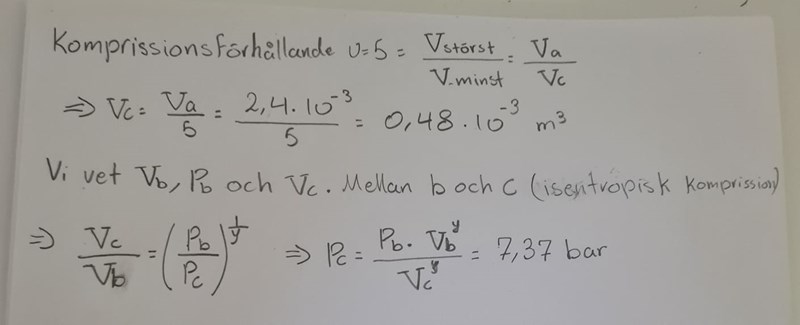 Komprissionsförhållande υ=5 = Vstörst/V.minst = Va/Vc
⇒ Vc = Va/5 = 2,4·10⁻³/5 = 0,48·10⁻³ m³
Vi vet Vb, Pb och Vc. Mellan b och C (isentropisk komprission)
⇒ Vc/Vb = (Pb/Pc)^(1/y) ⇒ Pc = Pb·Vb^y/Vc^y = 7,37 bar